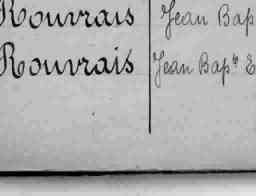 Rouvrais Jean Bap
Rouvrais Jean Bapte E